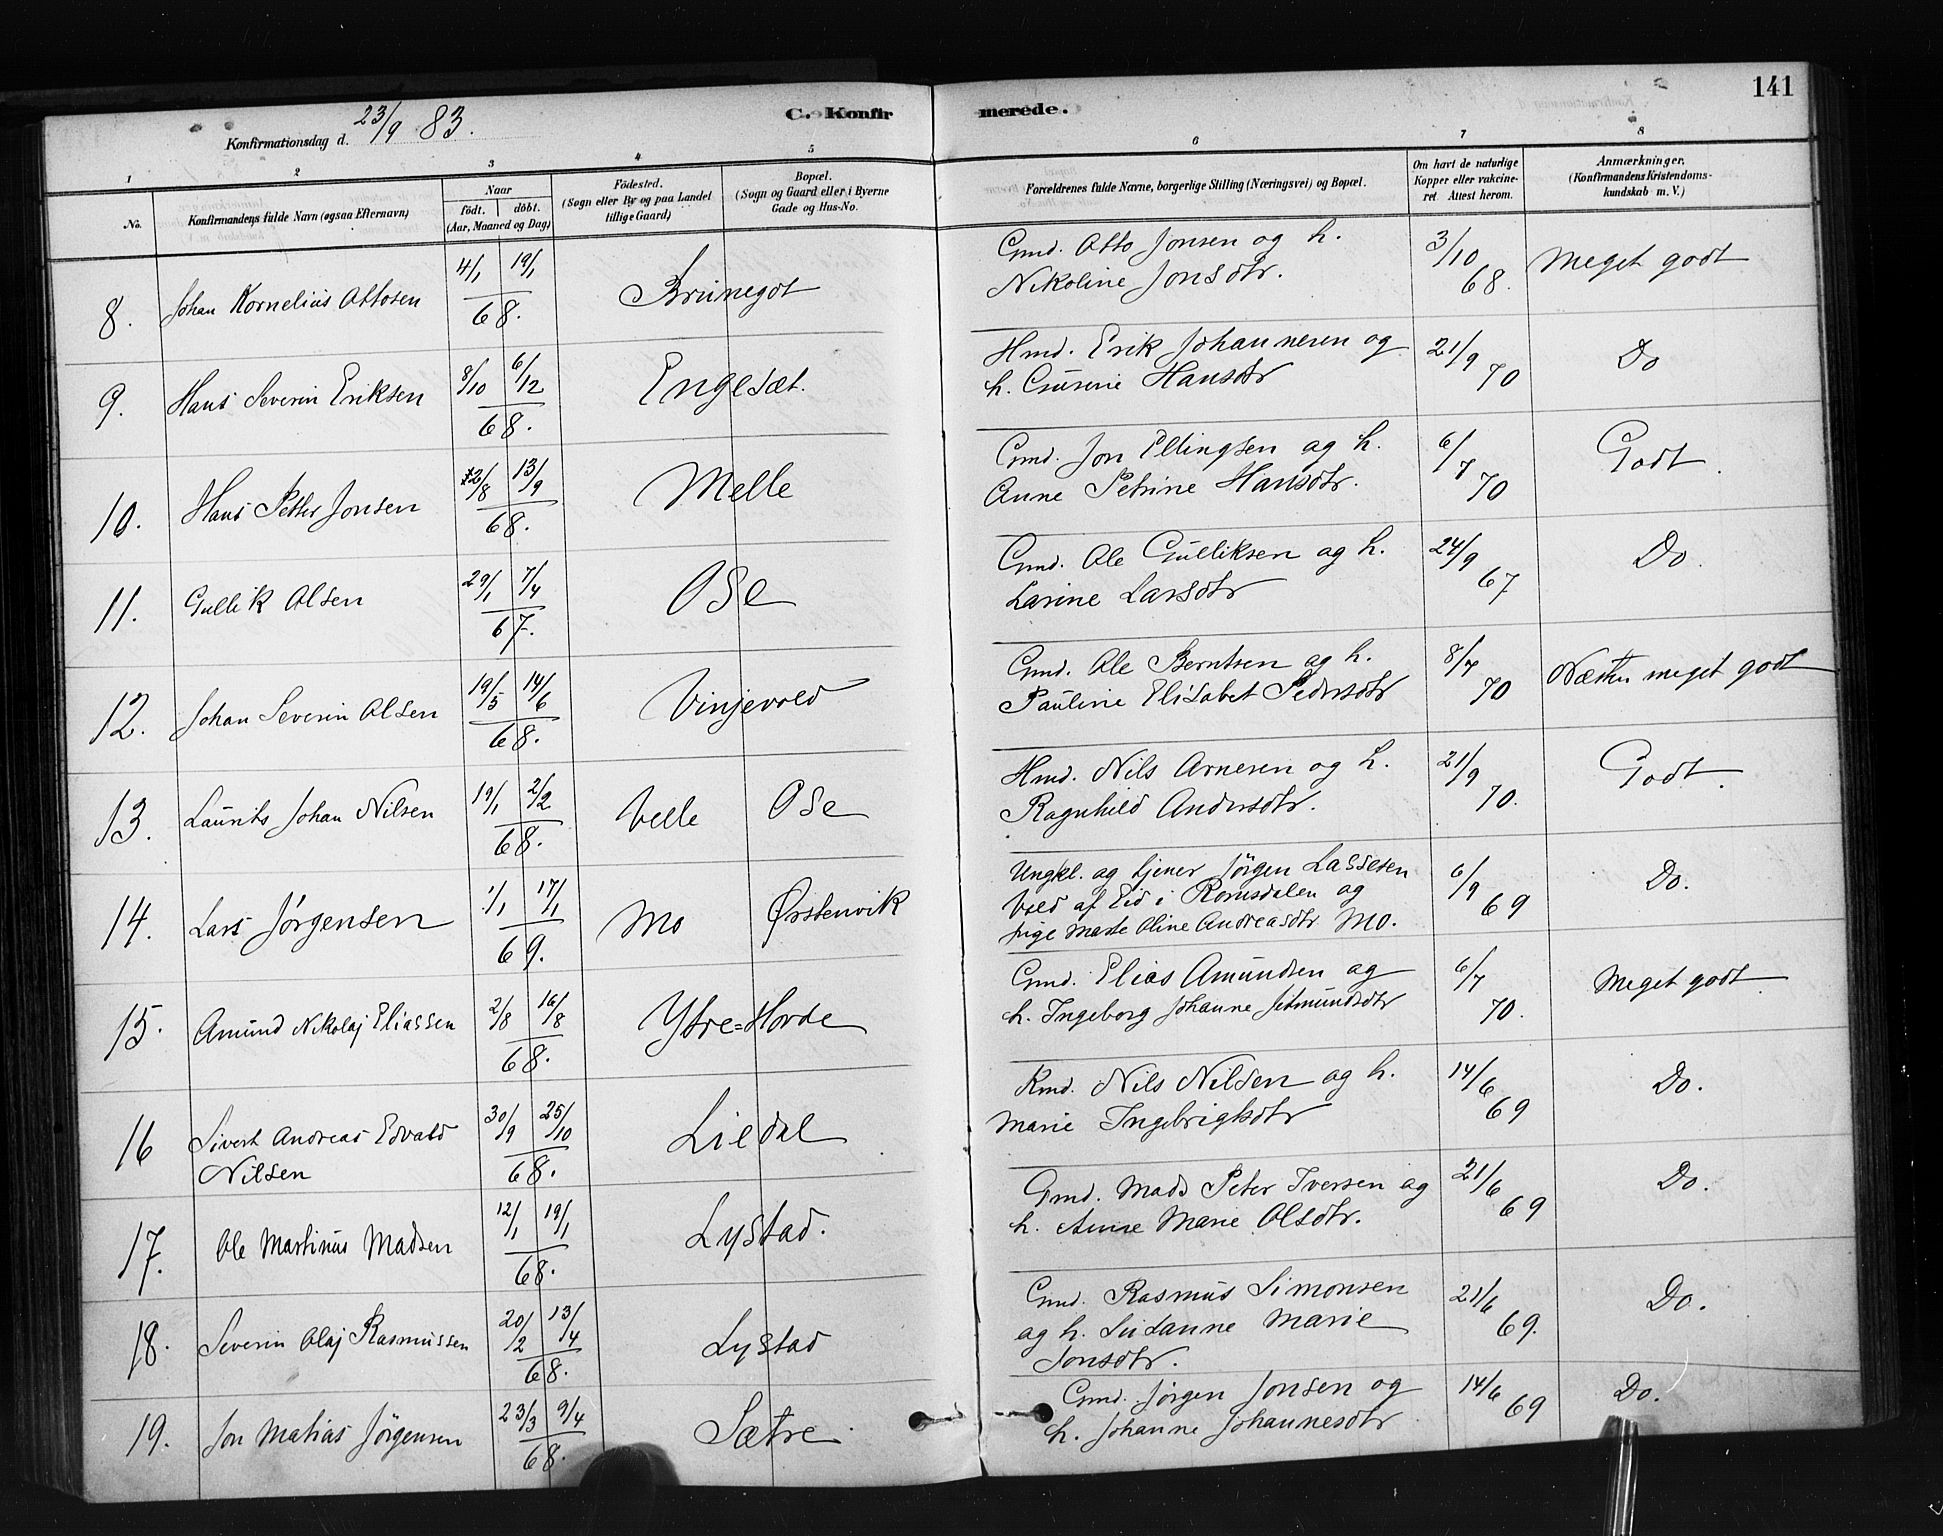 141
C. Konfirmerede.
Konfirmationsdag d. 23/9 83.
1 2 3 4 5 6 7 8
No. Konfirmandens fulde Navn (ogsaa Efternavn) Naar født. døbt. (Aar, Maaned og Dag) Fødested. (Sogn eller By og paa Landet tillige Gaard) Bopæl. (Sogn og Gaard eller i Byerne Gade og Hus-No. Forældrenes fulde Navne, borgerlige Stilling (Næringsvei) og Bopæl. Om havt de naturlige Kopper eller vakcineret Attest herom. Anmærkninger. (Konfirmandens Kristendomskundskab m. V.)
8. Johan Kornelius Ottosen 4/1 19/1 68. Brunegot Gmd. Otto Jonsen og h. 3/10 68. Meget godt
Nikoline Jonsdtr.
9. Hans Severin Eriksen 8/10 6/12 68. Engeset. Hmd. Erik Johannesen og 21/9 70 Do
h. Gurine Hansdtr
10. Hans Petter Jonsen 22/8 13/9 68. Melle Gmd. Jon Ellingsen og h. 6/7 70 Godt.
Anne Petrine Hansdtr.
11. Gullik Olsen 29/1 7/4 67. Ose Gmd. Ole Gulliksen og h. 24/9 67 Do.
Larine Larsdtr
12. Johan Severin Olsen 19/5 14/6 68. Vinjevold Gmd. Ole Berntsen og h. 8/7 70 Næsten meget godt
Pauline Elisabet Pedersdtr
13. Laurits Johan Nilsen 19/1 2/2 68. Velle Ose Hmd. Nils Arnesen og h. 21/9 70. Godt.
Ragnhild Andersdtr.
14. Lars Jørgensen 1/1 17/1 69. Mo Ørstenvik Ungkl. og tjener Jørgen Lassesen 6/9 69 Do.
Vold af Eid i Romsdalen og
pige Marte Oline Andreasdtr Mo.
15. Amund Nikolaj Eliassen 2/8 16/8 68. Ytre=Horde Gmd. Elias Amundsen og 6/7 70. Meget godt
h. Ingeborg Johanne Jetmundsdtr
16 Sivert Andreas Edvald 30/9 25/10 68. Liedal Kmd. Nils Nilsen og h. 14/6 69 Do.
Nilsen Marie Ingebrigtsdtr
17. Ole Martinus Madsen 12/1 19/1 68. Lystad. Gmd. Mads Peter Iversen og 21/6 69 Do.
h. Anne Marie Olsdtr.
18. Severin Olaj Rasmussen 20/2 13/4 68. Lystad Gmd. Rasmus Simonsen 21/6 69. Do.
og h. Susanne Marie
Jonsdtr.
19. Jon Matias Jørgensen 23/3 9/4 68. Sætre Gmd. Jørgen Jonsen og 14/6 69 Do.
h. Johanne Johannesdtr